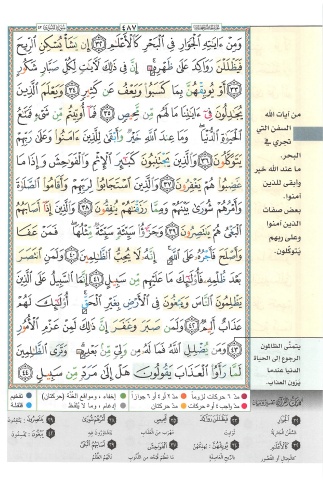 ٤٨٧
وَمِنْ ءَايَٰتِهِ ٱلْجَوَارِ فِى ٱلْبَحْرِ كَٱلْأَعْلَٰمِ ٣٢ إِن يَشَأْ يُسْكِنِ ٱلرِّيحَ
فَيَظْلَلْنَ رَوَاكِدَ عَلَىٰ ظَهْرِهِۦٓ إِنَّ فِى ذَٰلِكَ لَءَايَٰتٍ لِّكُلِّ صَبَّارٍ شَكُورٍ
٣٣ أَوْ يُوبِقْهُنَّ بِمَا كَسَبُوا۟ وَيَعْفُ عَن كَثِيرٍ ٣٤ وَيَعْلَمَ ٱلَّذِينَ
يُجَٰدِلُونَ فِىٓ ءَايَٰتِنَا مَا لَهُم مِّن مَّحِيصٍ ٣٥ فَمَآ أُوتِيتُم مِّن شَىْءٍ فَمَتَٰعُ
ٱلْحَيَوٰةِ ٱلدُّنْيَا وَمَا عِندَ ٱللَّهِ خَيْرٌ وَأَبْقَىٰ لِلَّذِينَ ءَامَنُوا۟ وَعَلَىٰ رَبِّهِمْ
يَتَوَكَّلُونَ ٣٦ وَٱلَّذِينَ يَجْتَنِبُونَ كَبَٰٓئِرَ ٱلْإِثْمِ وَٱلْفَوَٰحِشَ وَإِذَا مَا
غَضِبُوا۟ هُمْ يَغْفِرُونَ ٣٧ وَٱلَّذِينَ ٱسْتَجَابُوا۟ لِرَبِّهِمْ وَأَقَامُوا۟ ٱلصَّلَوٰةَ
وَأَمْرُهُمْ شُورَىٰ بَيْنَهُمْ وَمِمَّا رَزَقْنَٰهُمْ يُنفِقُونَ ٣٨ وَٱلَّذِينَ إِذَآ أَصَابَهُمُ
ٱلْبَغْىُ هُمْ يَنتَصِرُونَ ٣٩ وَجَزَٰٓؤُا۟ سَيِّئَةٍ سَيِّئَةٌ مِّثْلُهَا فَمَنْ عَفَا
وَأَصْلَحَ فَأَجْرُهُۥ عَلَى ٱللَّهِ إِنَّهُۥ لَا يُحِبُّ ٱلظَّٰلِمِينَ ٤٠ وَلَمَنِ ٱنتَصَرَ
بَعْدَ ظُلْمِهِۦ فَأُو۟لَٰٓئِكَ مَا عَلَيْهِم مِّن سَبِيلٍ ٤١ إِنَّمَا ٱلسَّبِيلُ عَلَى ٱلَّذِينَ
يَظْلِمُونَ ٱلنَّاسَ وَيَبْغُونَ فِى ٱلْأَرْضِ بِغَيْرِ ٱلْحَقِّ أُو۟لَٰٓئِكَ لَهُمْ
عَذَابٌ أَلِيمٌ ٤٢ وَلَمَن صَبَرَ وَغَفَرَ إِنَّ ذَٰلِكَ لَمِنْ عَزْمِ ٱلْأُمُورِ
٤٣ وَمَن يُضْلِلِ ٱللَّهُ فَمَا لَهُۥ مِن وَلِىٍّ مِّنۢ بَعْدِهِۦ وَتَرَى ٱلظَّٰلِمِينَ
لَمَّا رَأَوُا۟ ٱلْعَذَابَ يَقُولُونَ هَلْ إِلَىٰ مَرَدٍّ مِّن سَبِيلٍ ٤٤
من آيات الله
السفن التي
تجري في
البحر.
ما عند الله خير
وأبقى للذين
آمنوا.
بعض صفات
الذين آمنوا
وعلى ربهم
يتوكلون.
يتمنّى الظالمون
الرجوع إلى الحياة
الدنيا عندما
يرون العذاب.